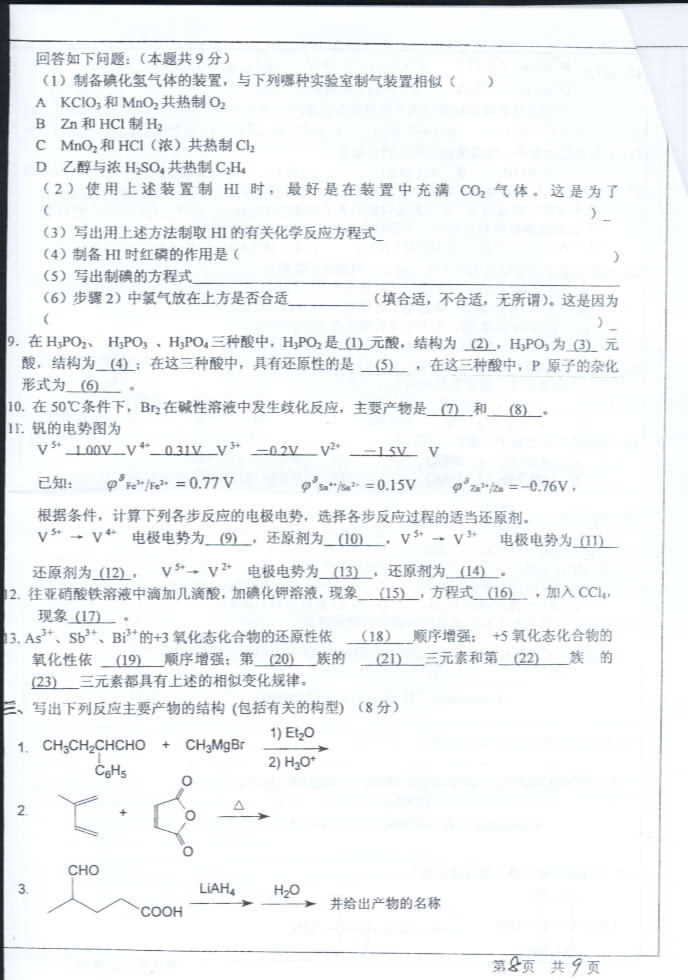 回答如下问题：（本题共9分）
（1）制备碘化氢气体的装置，与下列哪种实验室制气装置相似（　　）
A KClO₃和MnO₂共热制O₂
B Zn和HCl制H₂
C MnO₂和HCl（浓）共热制Cl₂
D 乙醇与浓H₂SO₄共热制C₂H₄
（2）使用上述装置制 HI 时，最好是在装置中充满 CO₂ 气体。这是为了
（　　　　）_
（3）写出用上述方法制取HI的有关化学反应方程式_
（4）制备HI时红磷的作用是（　　　　）
（5）写出制碘的方程式____
（6）步骤2）中氯气放在上方是否合适____（填合适，不合适，无所谓）。这是因为
（　　　　）_
9. 在H₃PO₂、 H₃PO₃ 、H₃PO₄三种酸中，H₃PO₂是 (1) 元酸，结构为 (2) ，H₃PO₃为 (3) 元
酸，结构为 (4) ；在这三种酸中，具有还原性的是 (5) ，在这三种酸中，P 原子的杂化
形式为 (6) 。
10. 在50℃条件下，Br₂在碱性溶液中发生歧化反应，主要产物是 (7) 和 (8) 。
11. 钒的电势图为
V⁵⁺ 1.00V V⁴⁺ 0.31V V³⁺ —0.2V V²⁺ —1.5V V
已知： φᶿFe³⁺/Fe²⁺ = 0.77 V φᶿSn⁴⁺/Sn²⁺ = 0.15V φᶿZn²⁺/Zn = -0.76V，
根据条件，计算下列各步反应的电极电势，选择各步反应过程的适当还原剂。
V⁵⁺ → V⁴⁺ 电极电势为 (9) ，还原剂为 (10) ，V⁵⁺ → V³⁺ 电极电势为 (11)
还原剂为 (12) ， V⁵⁺ → V²⁺ 电极电势为 (13) ，还原剂为 (14) 。
12. 往亚硝酸铁溶液中滴加几滴酸，加碘化钾溶液，现象 (15) ，方程式 (16) ，加入CCl₄，
现象 (17) 。
13. As³⁺、Sb³⁺、Bi³⁺的+3氧化态化合物的还原性依 （18） 顺序增强； +5氧化态化合物的
氧化性依 (19) 顺序增强；第 (20) 族的 (21) 三元素和第 (22) 族 的
(23) 三元素都具有上述的相似变化规律。
三、写出下列反应主要产物的结构 (包括有关的构型) （8分）
1. CH₃CH₂CHCHO + CH₃MgBr 1) Et₂O
C₆H₅ 2) H₃O⁺
O
2. + O △
O
CHO
3. COOH LiAH₄ H₂O 并给出产物的名称
第8页 共9页